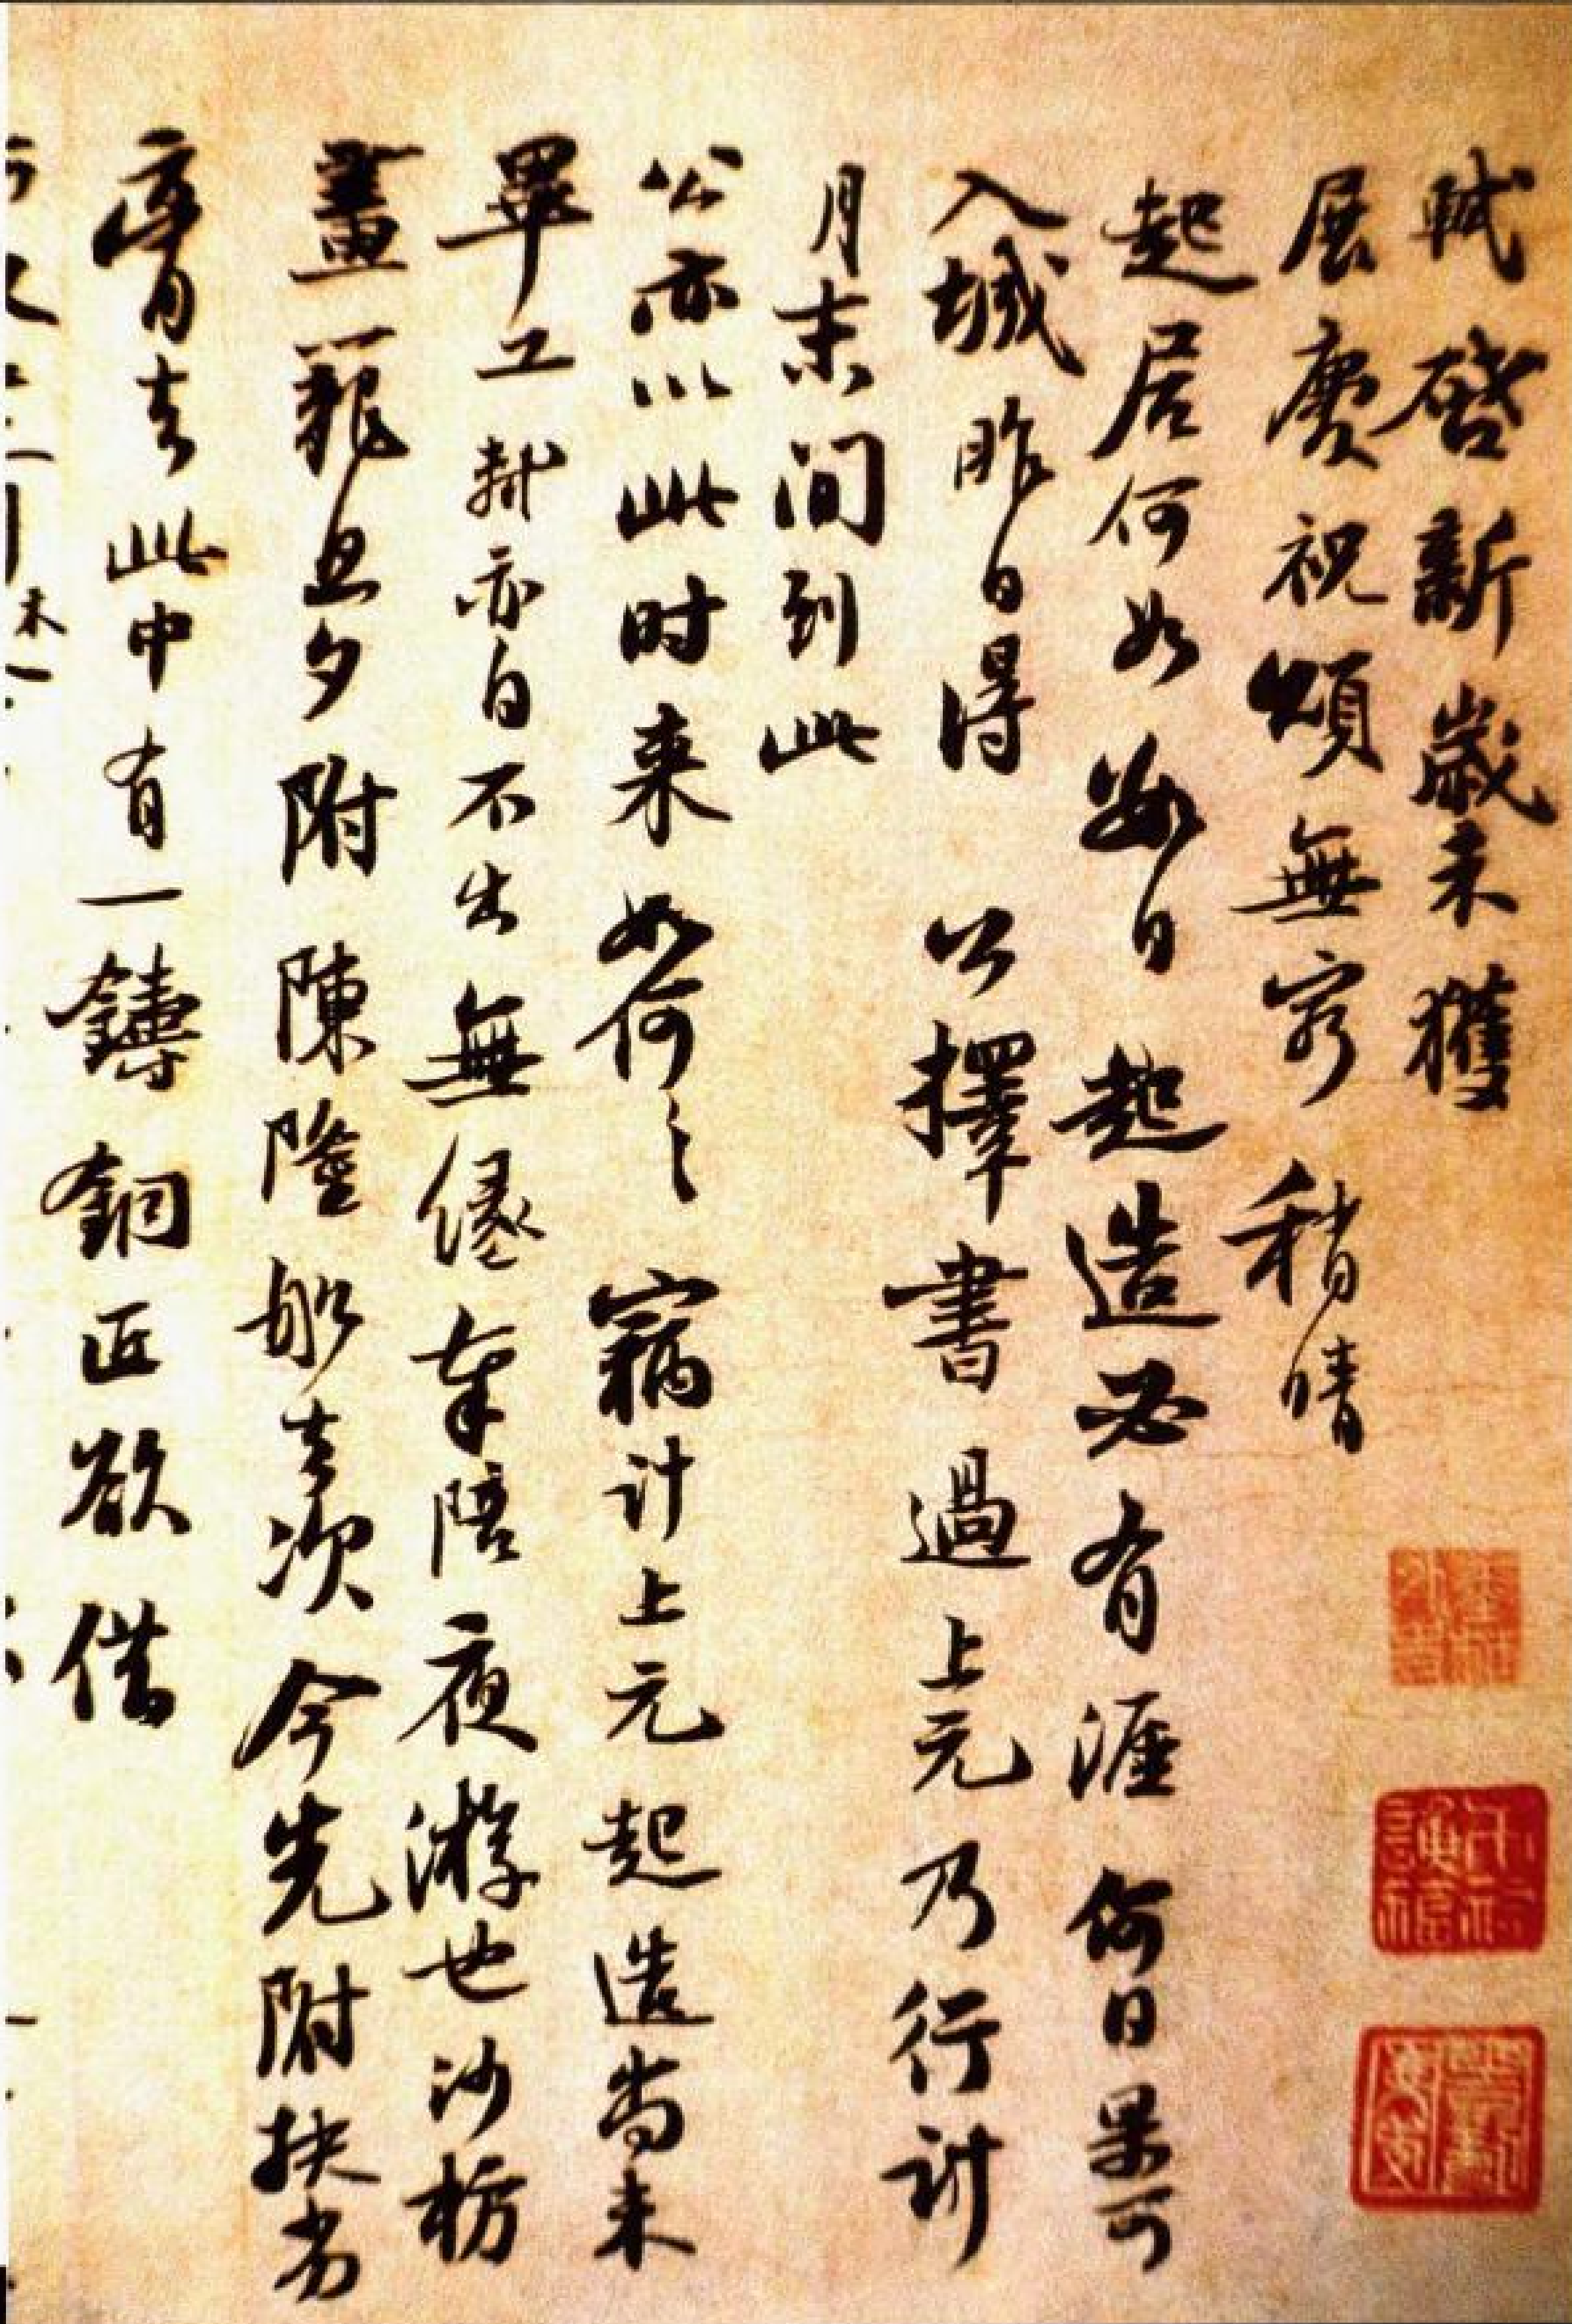 軾啓新歲未獲
展慶祝頌無窮稍晴
起居何如數日起造必有涯何日果可
入城昨日得公擇書過上元乃行計
月末間到此
公亦以此时来如何々竊计上元起造尚未
畢工軾亦自不出無緣奉陪夜游也沙枋
畫籠旦夕附陳隆船去次今先附扶劣
膏去此中有一鑄銅匠欲借